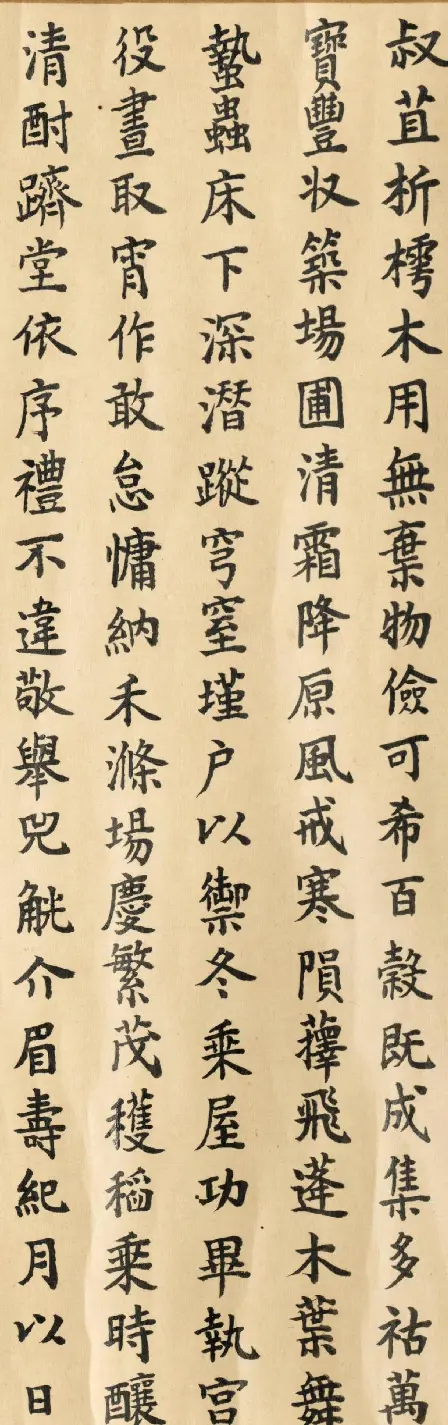 叔苴折樗木用無棄物儉可希百穀既成集多祜萬
寶豐収築場圃清霜降原風戒寒隕蘀飛蓬木葉舞
蟄蟲床下深潛蹤穹窒墐户以禦冬乘屋功畢執宫
役晝取宵作敢怠慵納禾滌場慶繁茂穫稻乗時釀
清酎躋堂依序禮不違敬舉兕觥介眉壽紀月以日